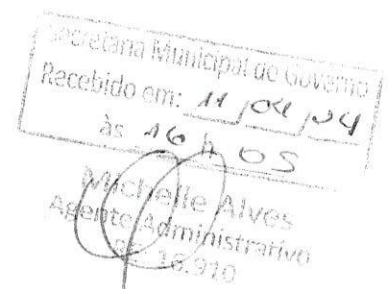 Secretaria Municipal de Governo
Recebido em: 11/04/24
às 16 h 05
Michelle Alves
Agente Administrativo
18.910